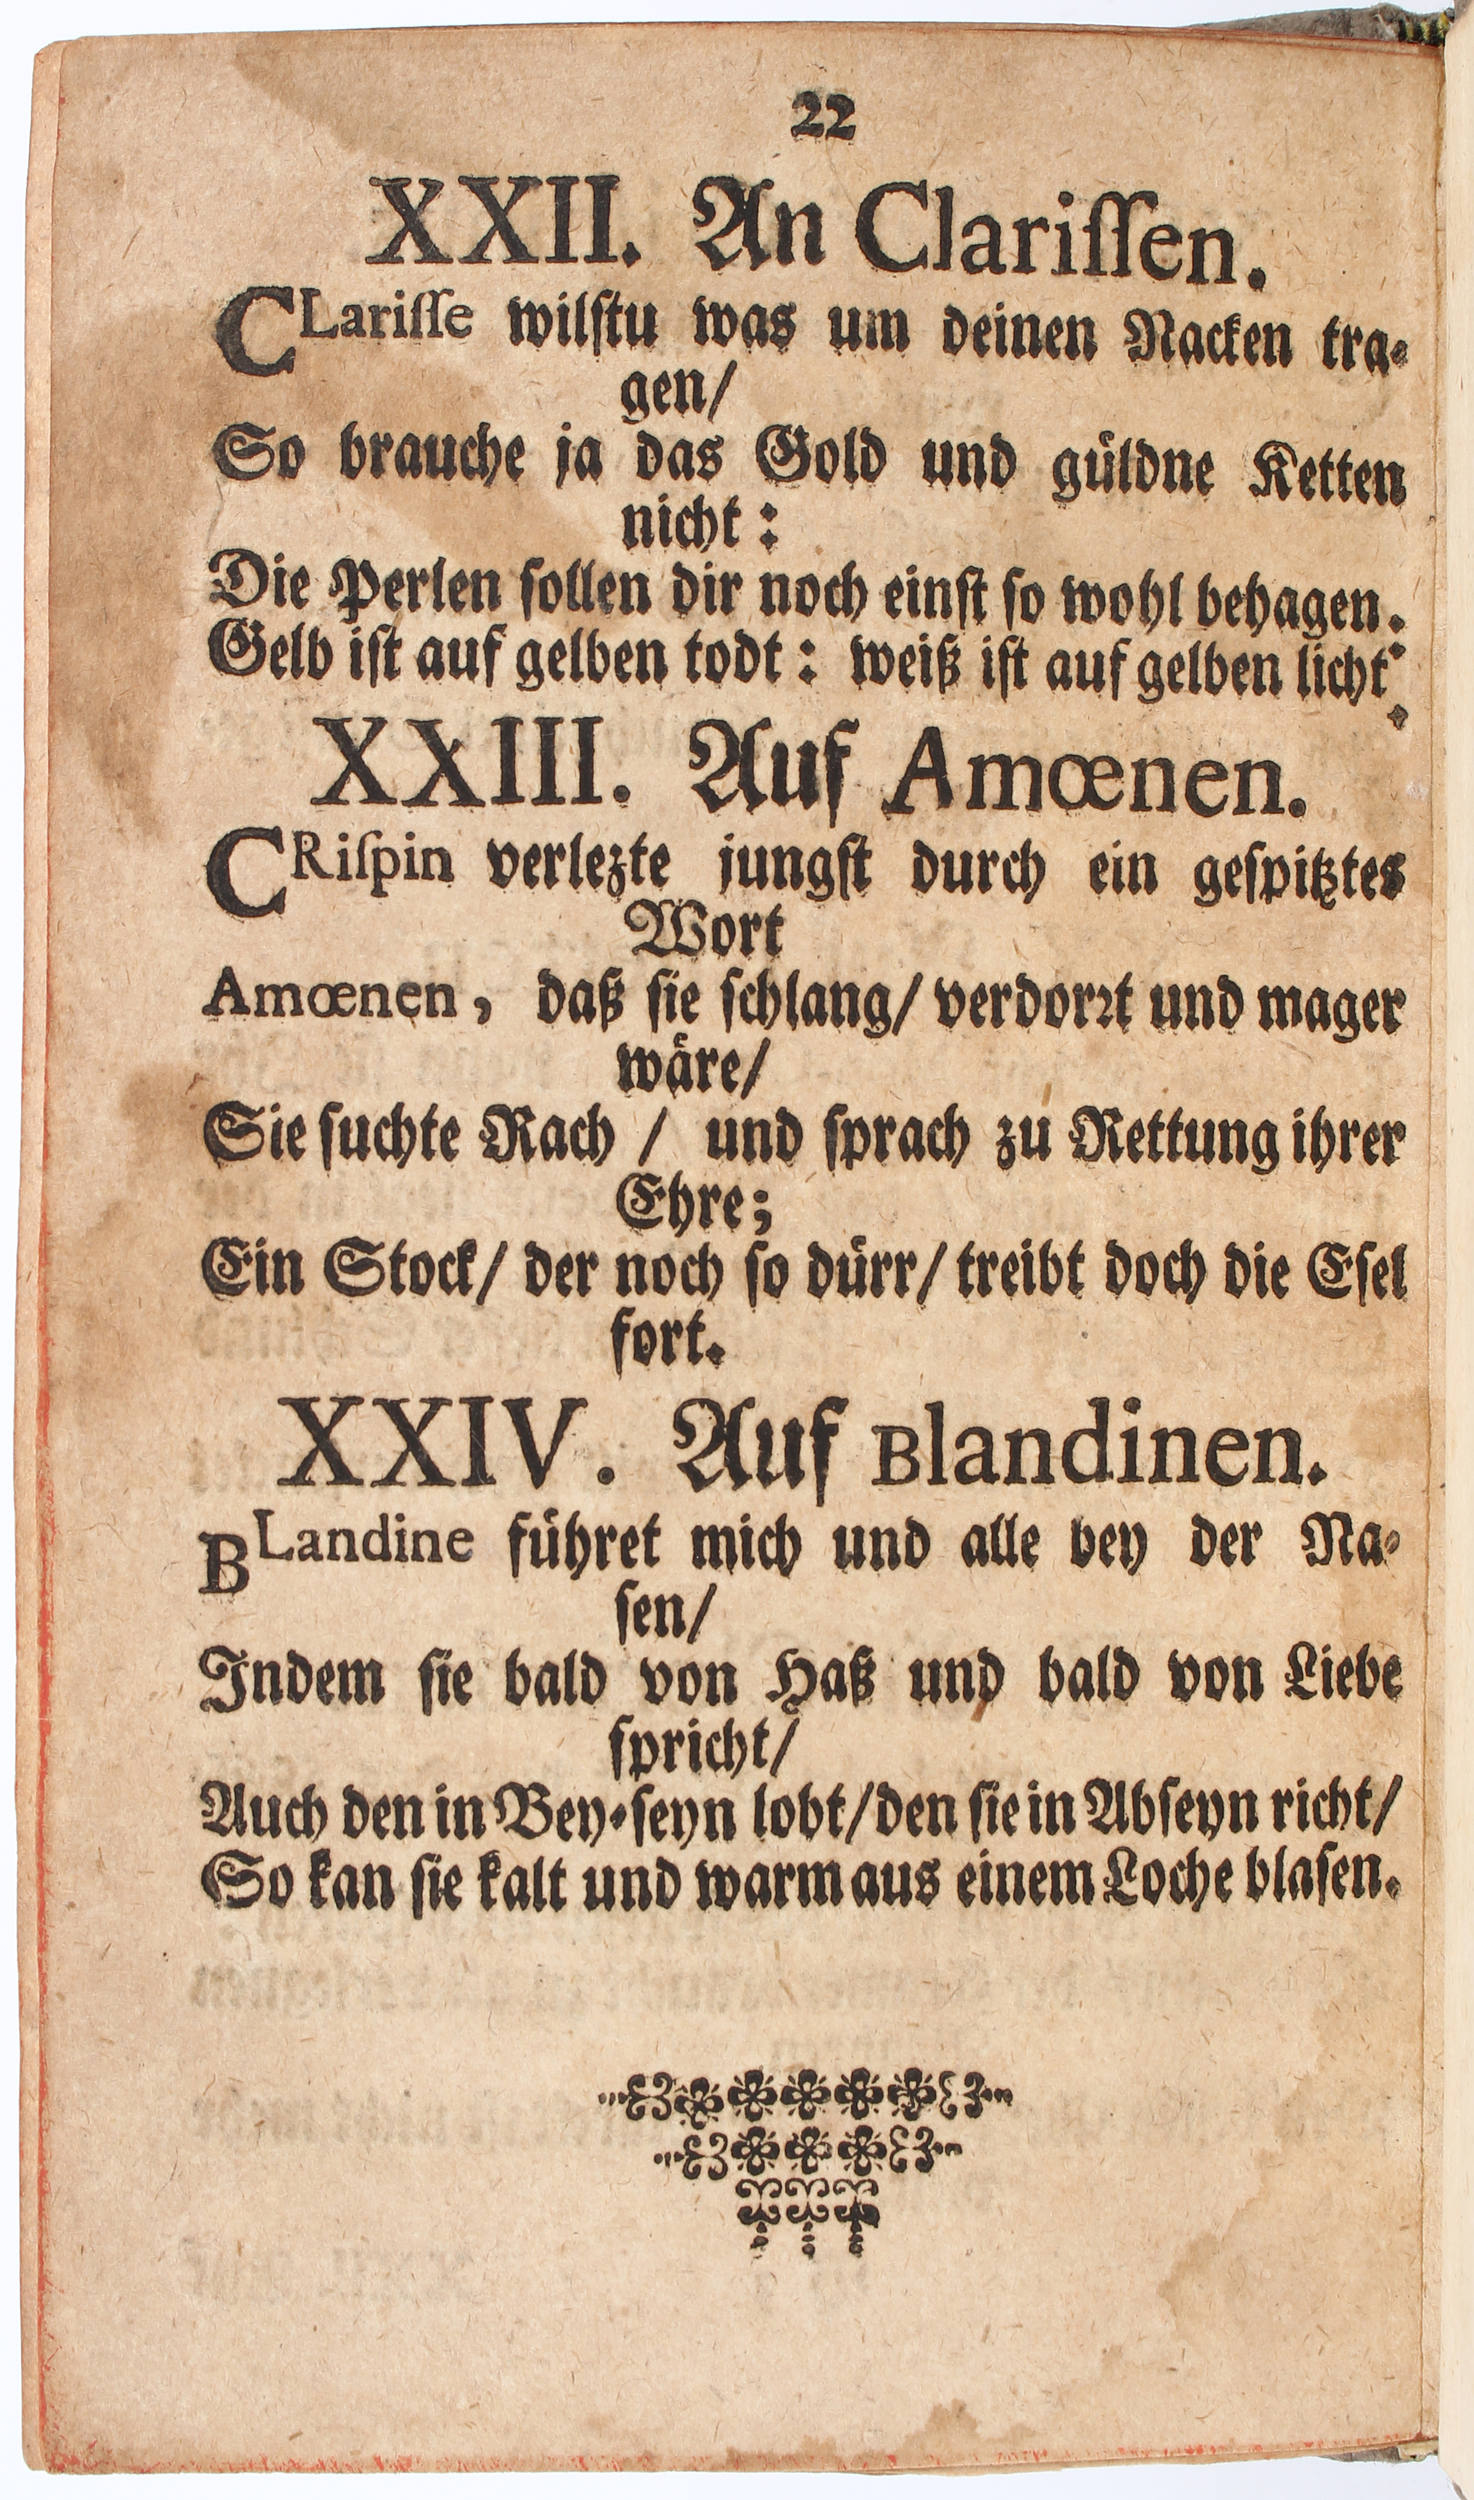 22
XXII. An Clariſſen.
CLariſſe wilſtu was um deinen Nacken tra-
gen/
So brauche ja das Gold und guͤldne Ketten
nicht:
Die Perlen ſollen dir noch einſt ſo wohl behagen.
Gelb iſt auf gelben todt: weiß iſt auf gelben licht.
XXIII. Auf Amœnen.
CRiſpin verlezte jungſt durch ein geſpitztes
Wort
Amœnen, daß ſie ſchlang/ verdorꝛt und mager
waͤre/
Sie ſuchte Rach / und ſprach zu Rettung ihrer
Ehre;
Ein Stock/ der noch ſo duͤrr/ treibt doch die Eſel
fort.
XXIV. Auf Blandinen.
BLandine fuͤhret mich und alle bey der Na-
ſen/
Indem ſie bald von Haß und bald von Liebe
ſpricht/
Auch den in Bey-ſeyn lobt/den ſie in Abſeyn richt/
So kan ſie kalt und warm aus einem Loche blaſen.